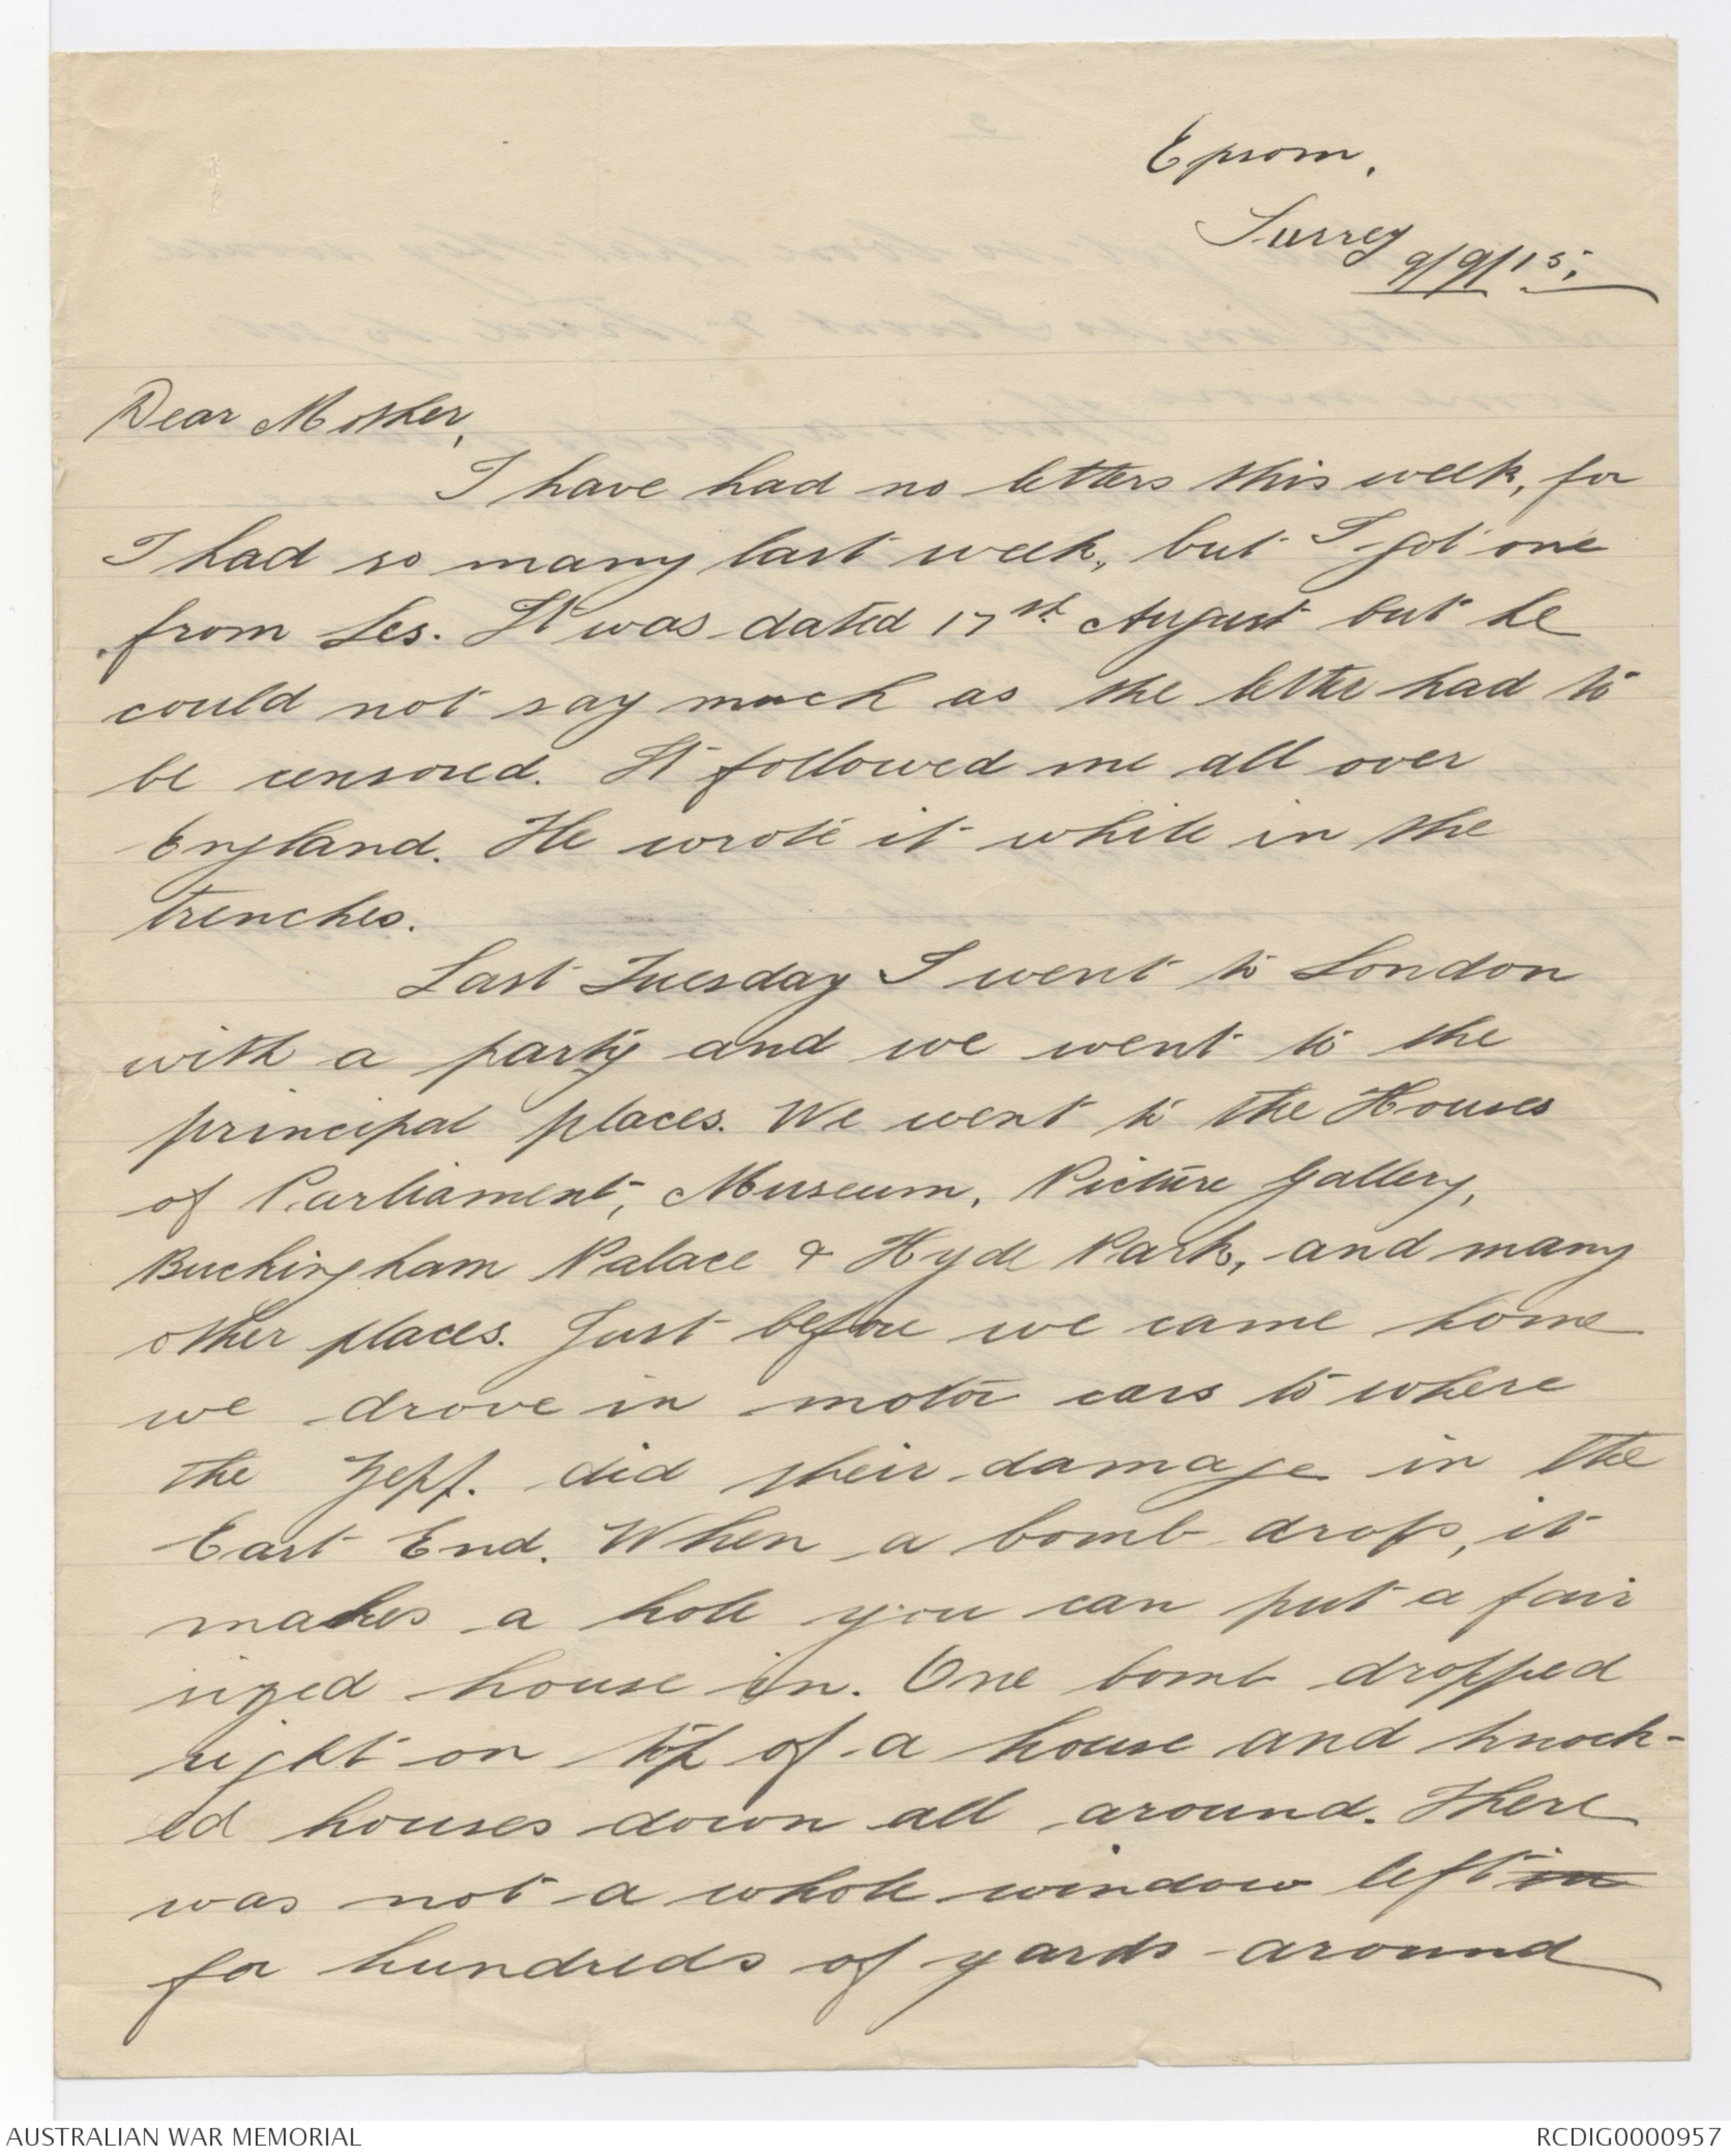 Epsom,
Surrey
9/9/15.
Dear Mother,
I have had no letters this week, for
I had so many last week, but I got one
from Les. It was dated 17st August but he
could not say much as the letter had to
be censored. It followed me all over
England. He wrote it while in the
trenches.
Last Tuesday I went to London
with a party and we went to the
principal places. We went to the Houses
of Parliament, Museum, Picture Gallery,
Buckingham Palace & Hyde Park, and many
other places. Just before we came home
we drove in motor cars to where
the Zepp. did their damage in the
East End. When a bomb drops, it
makes a hole you can put a fair
sized house in. One bomb dropped
right on top of a house and knock-
ed houses down all around. There
was not a whole window left in
for hundreds of yards around
AUSTRALIAN WAR MEMORIAL
RCDIG0000957